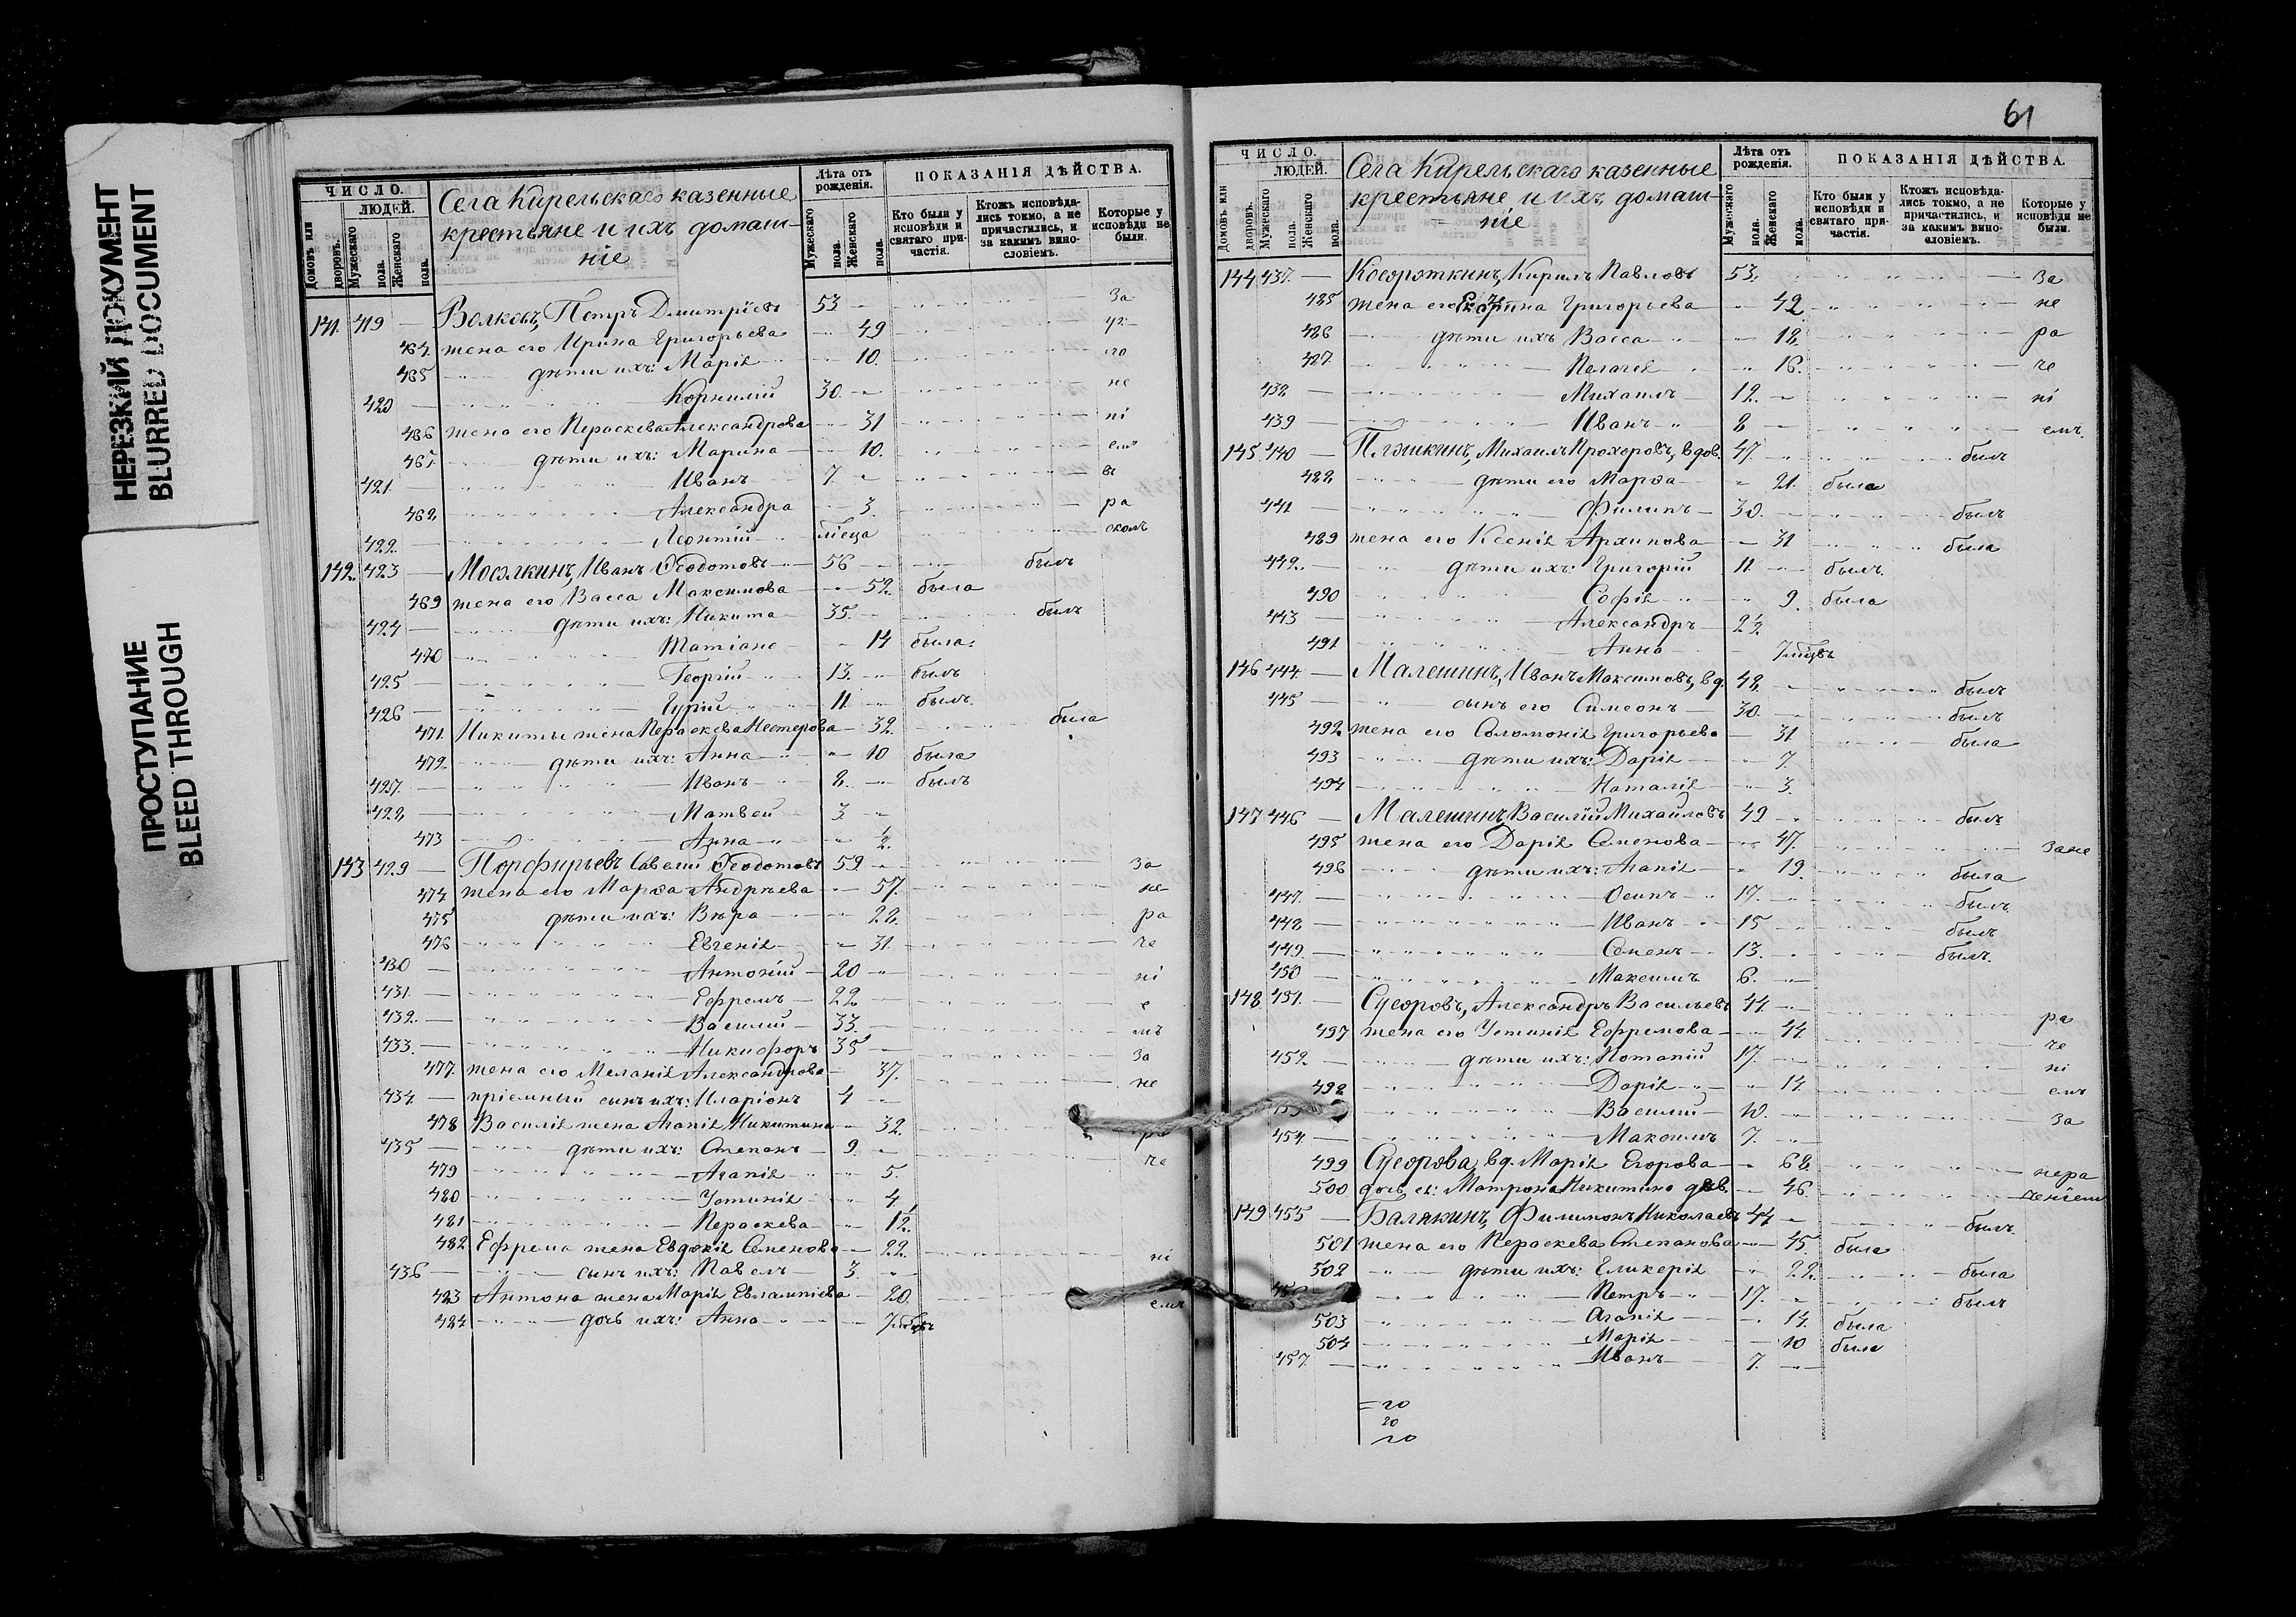 НЕРЕЗКИЙ ДОКУМЕНТ
BLURRED DOCUMENT
ПРОСТУПАНИЕ
BLEED THROUGH
ЧИСЛО.
ЛЮДЕЙ.
Домовъ или дворовъ.
Мужескаго пола.
Женскаго пола.
Села Кирельскаго казенные
крестьяне и ихъ домаш-
ніе
Лѣта отъ рожденія.
Мужескаго пола.
Женскаго пола.
ПОКАЗАНІЯ ДѢЙСТВА.
Кто были у исповѣди и святаго при-частія.
Ктожъ исповѣда-лись токмо, а не причастились, и за какимъ вино-словіемъ.
Которые у исповѣди не были.
141. 419 — Волковъ, Петръ Дмитріевъ 53 за
жена его Ирина Григорьева 49
465 дѣти ихъ: Марія 10. по
420 Корнилій 30. не
466 жена его Параскева Александрова 31 ні
дѣти ихъ: Марина 10. емъ
421 Иванъ 7 въ
468 Александра 3. ра
422. Леонтій сколъ
142. 423 — Иванъ Ѳеодотовъ 56 былъ
469 жена его Васса Максимова 52. была
424 дѣти ихъ: Никита 35. былъ
470 Татіана 14 была
425 Георгій 13. былъ
426 Гурій 11 былъ.
471. Никиты жена Параскева Нестерова 32. была
472 дѣти ихъ: Анна 10 была
427. Иванъ 8. былъ
428 Матвей 3
473 Анна ½
143 429 — Порфирьевъ Саватій Ѳеодотовъ 59. за
474 жена его Марѳа Андреева 57. не
475 дѣти ихъ: Вѣра 28. ра
476 Евгенія 31. че
430 Антоній 20 ні
431. Ефремъ 22 е
432. Василій 33. мъ
433. Никифоръ 35 за
477. жена его Меланія Александрова 37. не
434. пріемный сынъ ихъ: Иларіонъ 4
478 Василія жена Агапія Никитина 32. ра
435 дѣти ихъ: Степанъ 9. че
479 Агапія 5.
480 Устинія 4
481 Параскева 1½
482. Ефрема жена Евдокія Семенова 22. ні
436 сынъ ихъ: Павелъ 3.
483 Антона жена Марія Евлампіева 20. емъ
484 дочь ихъ: Анна
61
ЧИСЛО.
ЛЮДЕЙ.
Домовъ или дворовъ.
Мужескаго пола.
Женскаго пола.
Села Кирельскаго казенные
крестьяне и ихъ домаш-
ніе
Лѣта отъ рожденія.
Мужескаго пола.
Женскаго пола.
ПОКАЗАНІЯ ДѢЙСТВА.
Кто были у исповѣди и святаго при-частія.
Ктожъ исповѣда-лись токмо, а не причастились, и за какимъ вино-словіемъ.
Которые у исповѣди не были.
144 437. — Кирилъ Павловъ 53. за
485 жена его Григорьева 42 не
486 дѣти ихъ Васса 18. ра
487. Пелагея 16. че
438 Михаилъ 12. ні
439 Иванъ 8 емъ.
145 440 — Михаилъ Прохоровъ, вдов. 47. былъ
488 дѣти его Марѳа 21. была
441 Филипъ 30. былъ
489 жена его Ксенія Архипова 31 была
442. дѣти ихъ: Григорій 11. былъ.
490 Софія 9. была
443 Александръ 2½
491 Анна
146 444. — Малешинъ, Иванъ Максимовъ, вд. 48. былъ
445 сынъ его Симеонъ 30. былъ
492 жена его Соломонія Григорьева 31 была
493 дѣти ихъ: Дарія 7.
494 Наталія 3.
147 446 — Малешинъ, Василій Михайловъ 49 былъ
495 жена его Дарія Семенова 47. зане
496 дѣти ихъ: Агапія 19. была
447. Осипъ 17. былъ
448 Иванъ 15 былъ
449. Семенъ 13. былъ.
450 Максимъ 6.
148. 451. — Суворовъ, Александръ Васильевъ 44. ра
497 жена его Устинія Ефремова 44 че
452. дѣти ихъ: Потапій 17. ні
498 Дарія 14. емъ
453 Василій 10. за
454. Максимъ 7.
499 Суворова, вд. Марія Егорова 68 нера
500 дочь ея: Матрона Никитина дѣв. 46. ченіемъ
149 455 — Балякинъ, Филимонъ Николаевъ 44 былъ
501 жена его Параскева Степанова 45. была
502 дѣти ихъ: Гликерія 22. была
Петръ 17. былъ
503 Агапія 14. была
504 Марія 10 была
457. Иванъ 7.